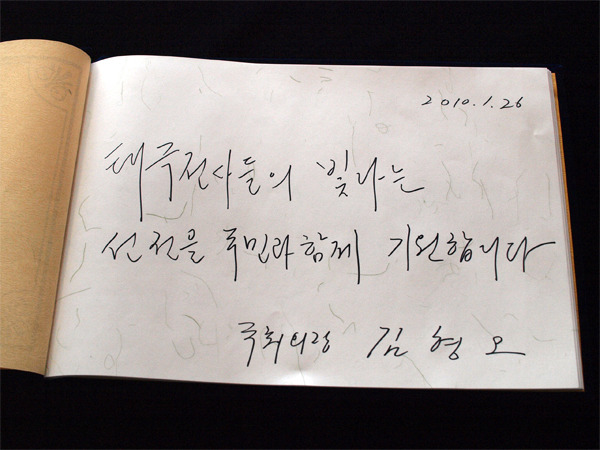 2010.1.26
태극전사들의 빛나는
선전을 국민과 함께 기원합니다
국회의장 김 형 오